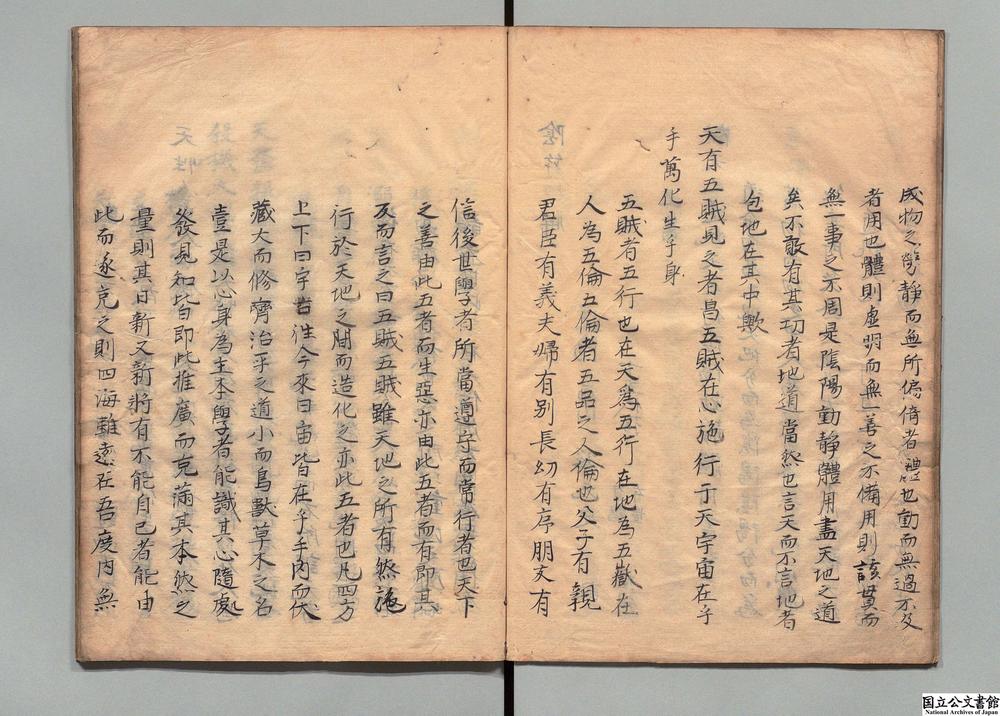 成物之勢靜而無所偏倚者體也動而無過不及
者用也體則虛明而無一善之不備用則該貫而
無一事之不周是陰陽動靜體用盡天地之道
矣不敢有其功者地道當然也言天而不言地者
包地在其中歟
天有五賊見之者昌五賊在心施行于天宇宙在乎
手萬化生乎身
五賊者五行也在天爲五行在地為五嶽在
人為五倫五倫者五品之人倫也父子有親
君臣有義夫婦有别長幼有序朋友有
信後世學者所當遵守而常行者也天下
之善由此五者而生惡亦由此五者而有即其
反而言之曰五賊五賊雖天地之所有然施
行於天地之間而造化之亦此五者也凡四方
上下曰宇古往今來曰宙皆在乎手内而伏
藏大而修齊治平之道小而鳥獸草木之名
壹是以心身為主本學者能識其心隨處
發見知皆即此推廣而充滿其本然之
量則其日新又新將有不能自已者能由
此而遂充之則四海雖遠在吾度内無
国立公文書館
National Archives of Japan